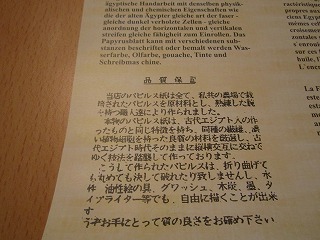 ägyptische Handarbeit mit denselben physik-
ischen und chemischen Eigenschaften wie
die der alten Ägypter gleiche art der faser -
gleiche dunkel verholzte Zellen - gleiche
anordnung der horizontalen
streifen gleiche fähigkeit zum Einrollen. Das
Papyrusblatt kann mit verschiedenen sub-
stanzen beschriftet oder bemalt werden Was-
serfarbe, Olfarbe, gouache, Tinte und
Schreibmas chine.
品質保証
当店のパピルス紙は全て、私共の農場で栽
培されたパピルスを原材料とし、熟練した腕
を持つ職人達により作られました。
本物のパピルス紙は、古代エジプト人の作
ったものと同じ特徴を持ち、同種の繊維、濃
い植物組織を持った良質の材料を厳選し、古
代エジプト時代そのままに縦横交互に交わて
ゆく技法を踏襲して作っております。
こうして作られたパピルスは、折り曲げて
も丸めても決して破れたり致しませんし、水
性、油性絵の具、グワッシュ、木炭、墨、タ
イプライター等でも、自由に描くことが出来ま
す
うぞお手にとって質の良さをお確め下さい
ractéristiques
propres
ciens Egypt
mêmes cell
zontal et v
rouleau. Il
différents
de
l'huile, l'en
La F
est